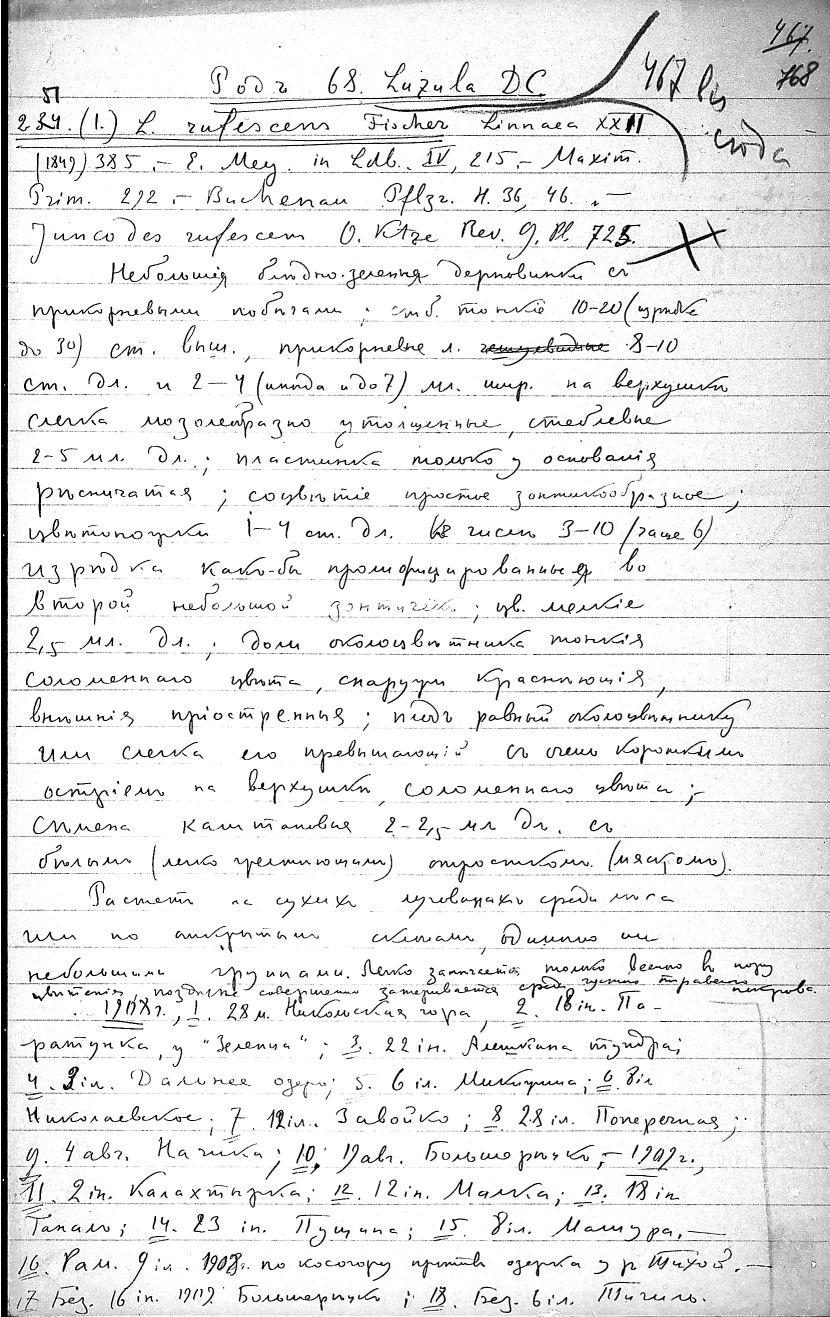 467.
468
Родъ 68. Luzula DC
467 bis
сюда
51
234. (1.) L. rufescens Fischer Linnaea XXII
(1849) 385.- E. Mey. in Ldb. IV, 215.- Maxim.
Prim. 292.- Buchenau Pflzr. H. 36, 46.-
Juncodes rufescens O. Ktze Rev. g. Pl. 725.
Небольшія блѣдно-зеленыя дерновинки съ
прикорневыми побѣгами; стб. тонкіе 10-20 (изрѣдка
до 30) ст. выш., прикорневые л. чешуевидные 8-10
ст. дл. и 2-4 (иногда и до 7) мл. шир. на верхушкѣ
слегка мозолеобразно утолщенные, стеблевые
2-5 мл. дл.; пластинка только у основанія
рѣсничатая; соцвѣтіе простое зонтикообразное;
цвѣтоножки 1-4 ст. дл. въ числѣ 3-10 (чаще 6)
изрѣдка какъ-бы пролифицированныя во
второй небольшой зонтичекъ; цв. мелкіе
2,5 мл. дл.; доли околоцвѣтника тонкія
соломеннаго цвѣта, снаружи краснѣющія,
внѣшнія пріостренныя; плодъ равный околоцвѣтнику
или слегка его превышающій съ очень короткимъ
остріемъ на верхушкѣ, соломеннаго цвѣта;-
сѣмена каштановыя 2-2,5 мл дл. съ
бѣлымъ (легко) отросткомъ.
Растетъ на сухихъ луговинахъ среди мха
или по открытымъ склонамъ, одиноко или
небольшими группами. Легко замѣчается только весною въ пору
цвѣтенія, позднѣе совершенно затеривается среди густого травяного покрова.
1908 г., 1. 28 м. Никольская гора, 2. 18 іп. Па-
ратунка, у "Зеленца"; 3. 22 іп. Алешкина тундра;
4. 2 іл. Дальнее озеро; 5. 6 іл. Микижина; 6. 8 іл
Николаевское; 7. 12 іл. Завойко; 8. 28 іл. Поперечная;
9. 4 авг. Начика; 10. 19 авг. Большерѣцкъ,- 1909 г.,
11. 2 іп. Калахтырка; 12. 12 іп. Малка; 13. 18 іп
Ганалъ; 14. 23 іп. Пущина; 15. 8 іл. Машура.-
16. Рам. 9 іл. 1908 г. по косогору противъ озерка у р. Тихой.-
17 Без. 16 іп. 1909. Большерѣцкъ; 18. Без. 6 іл. Тигиль.